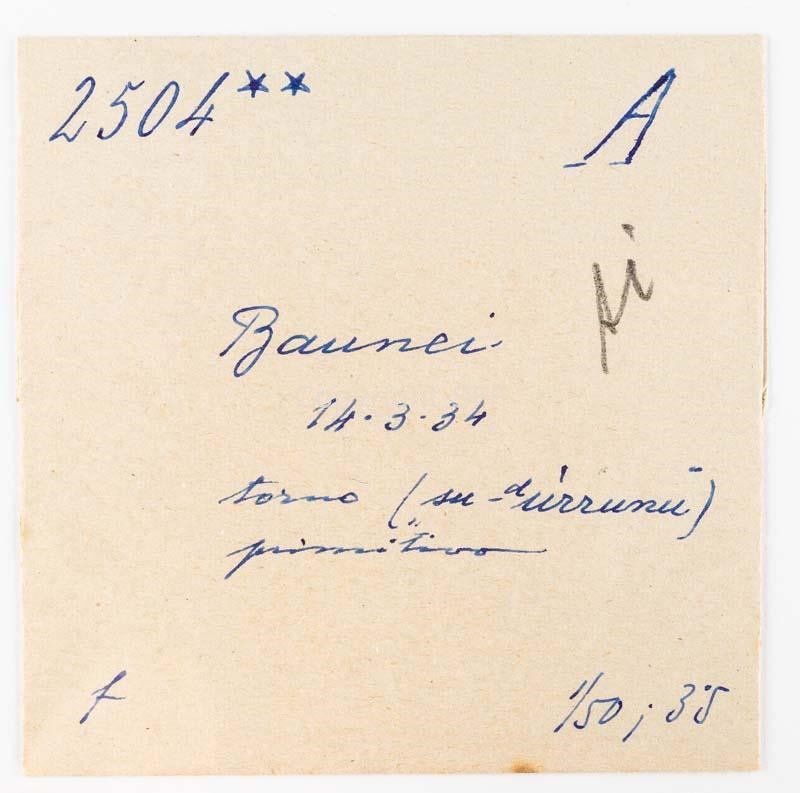 2504**
A
Baunei
14.3.34
torno („su -ᵈúrrunu“)
primitivo
f
1/50; 35